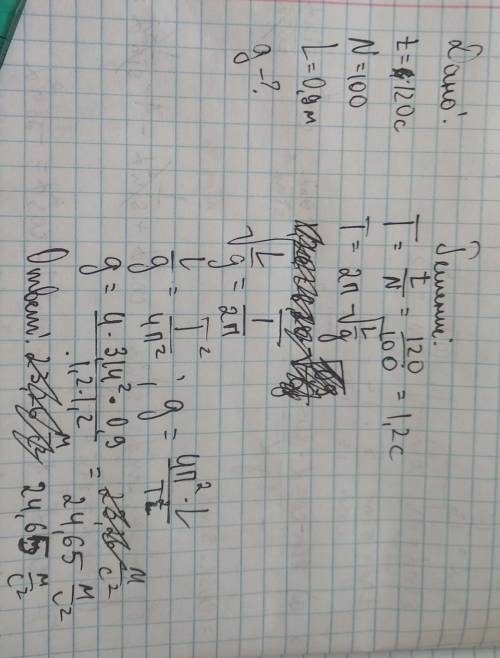 Дано:
t = 120 с
N = 100
L = 0,9 м
g - ?
Решение:
T = t/N = 120/100 = 1,2 с
T = 2π√(L/g)
√(L/g) = T/2π
L/g = T²/4π² ; g = 4π²·L/T²
g = 4·3,14²·0,9/1,2·1,2 = 24,65 м/с²
Ответ: 24,65 м/с²